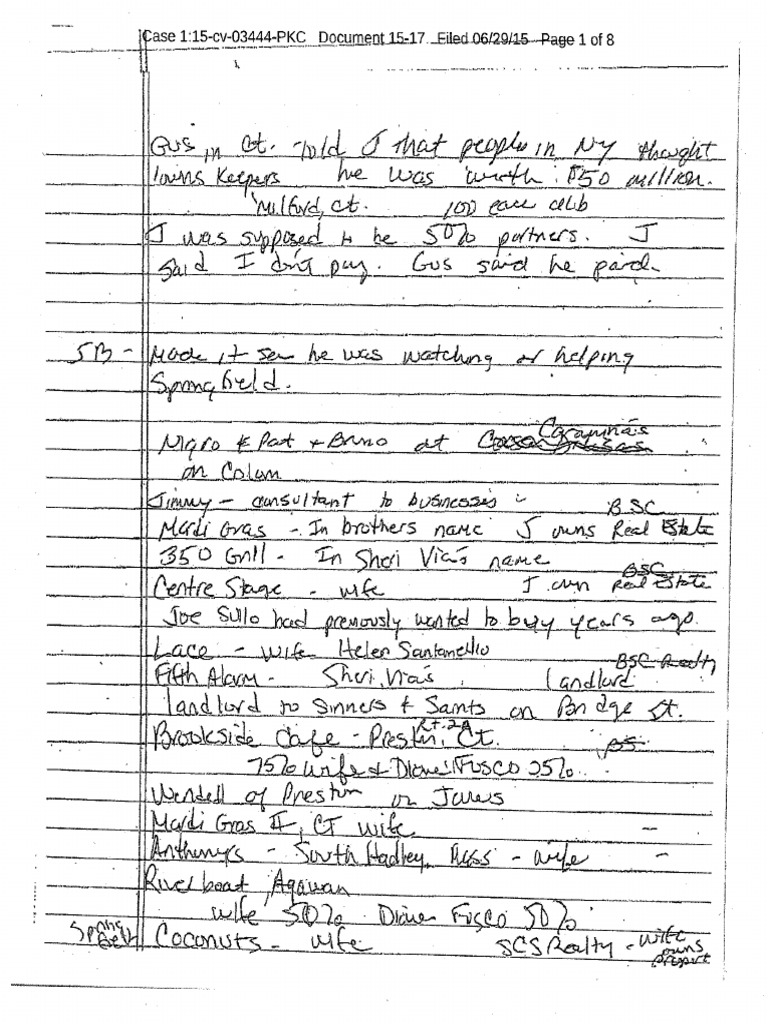 Case 1:15-cv-03444-PKC Document 15-17 Filed 06/29/15 Page 1 of 8
Gus in Ct. told J that people in NY thought
owns Keepers he was worth $50 million.
Milford, Ct. 100 each club
J was supposed to be 50% partners. J
said I don't pay. Gus said he paid.
SB - Made it seem he was watching or helping
Springfield.
Nigro & Pat + Bruno at Caramina's
on Colum
Jimmy - consultant to businesses - BSC
Mardi Gras - In brothers name J owns Real Estate
350 Grill - In Sheri Via's name BSC
Centre Stage - wife J own Real Estate
Joe Sullo had previously wanted to buy years ago.
Lace - wife Helen Santaniello BSC Realty
Fifth Alarm - Sheri Via's landlord
landlord to Sinners & Saints on Bridge St.
Brookside Cafe - Preston, Ct. Rt. 2A BS
75% wife & Diane Fusco 25%
Wendell of Preston on
Mardi Gras II, CT wife -
Anthony's - South Hadley, Mass - wife -
Riverboat, Agawam
wife 50% Diane Fusco 50%
Springfield Coconuts - wife SCS Realty - wife owns propert